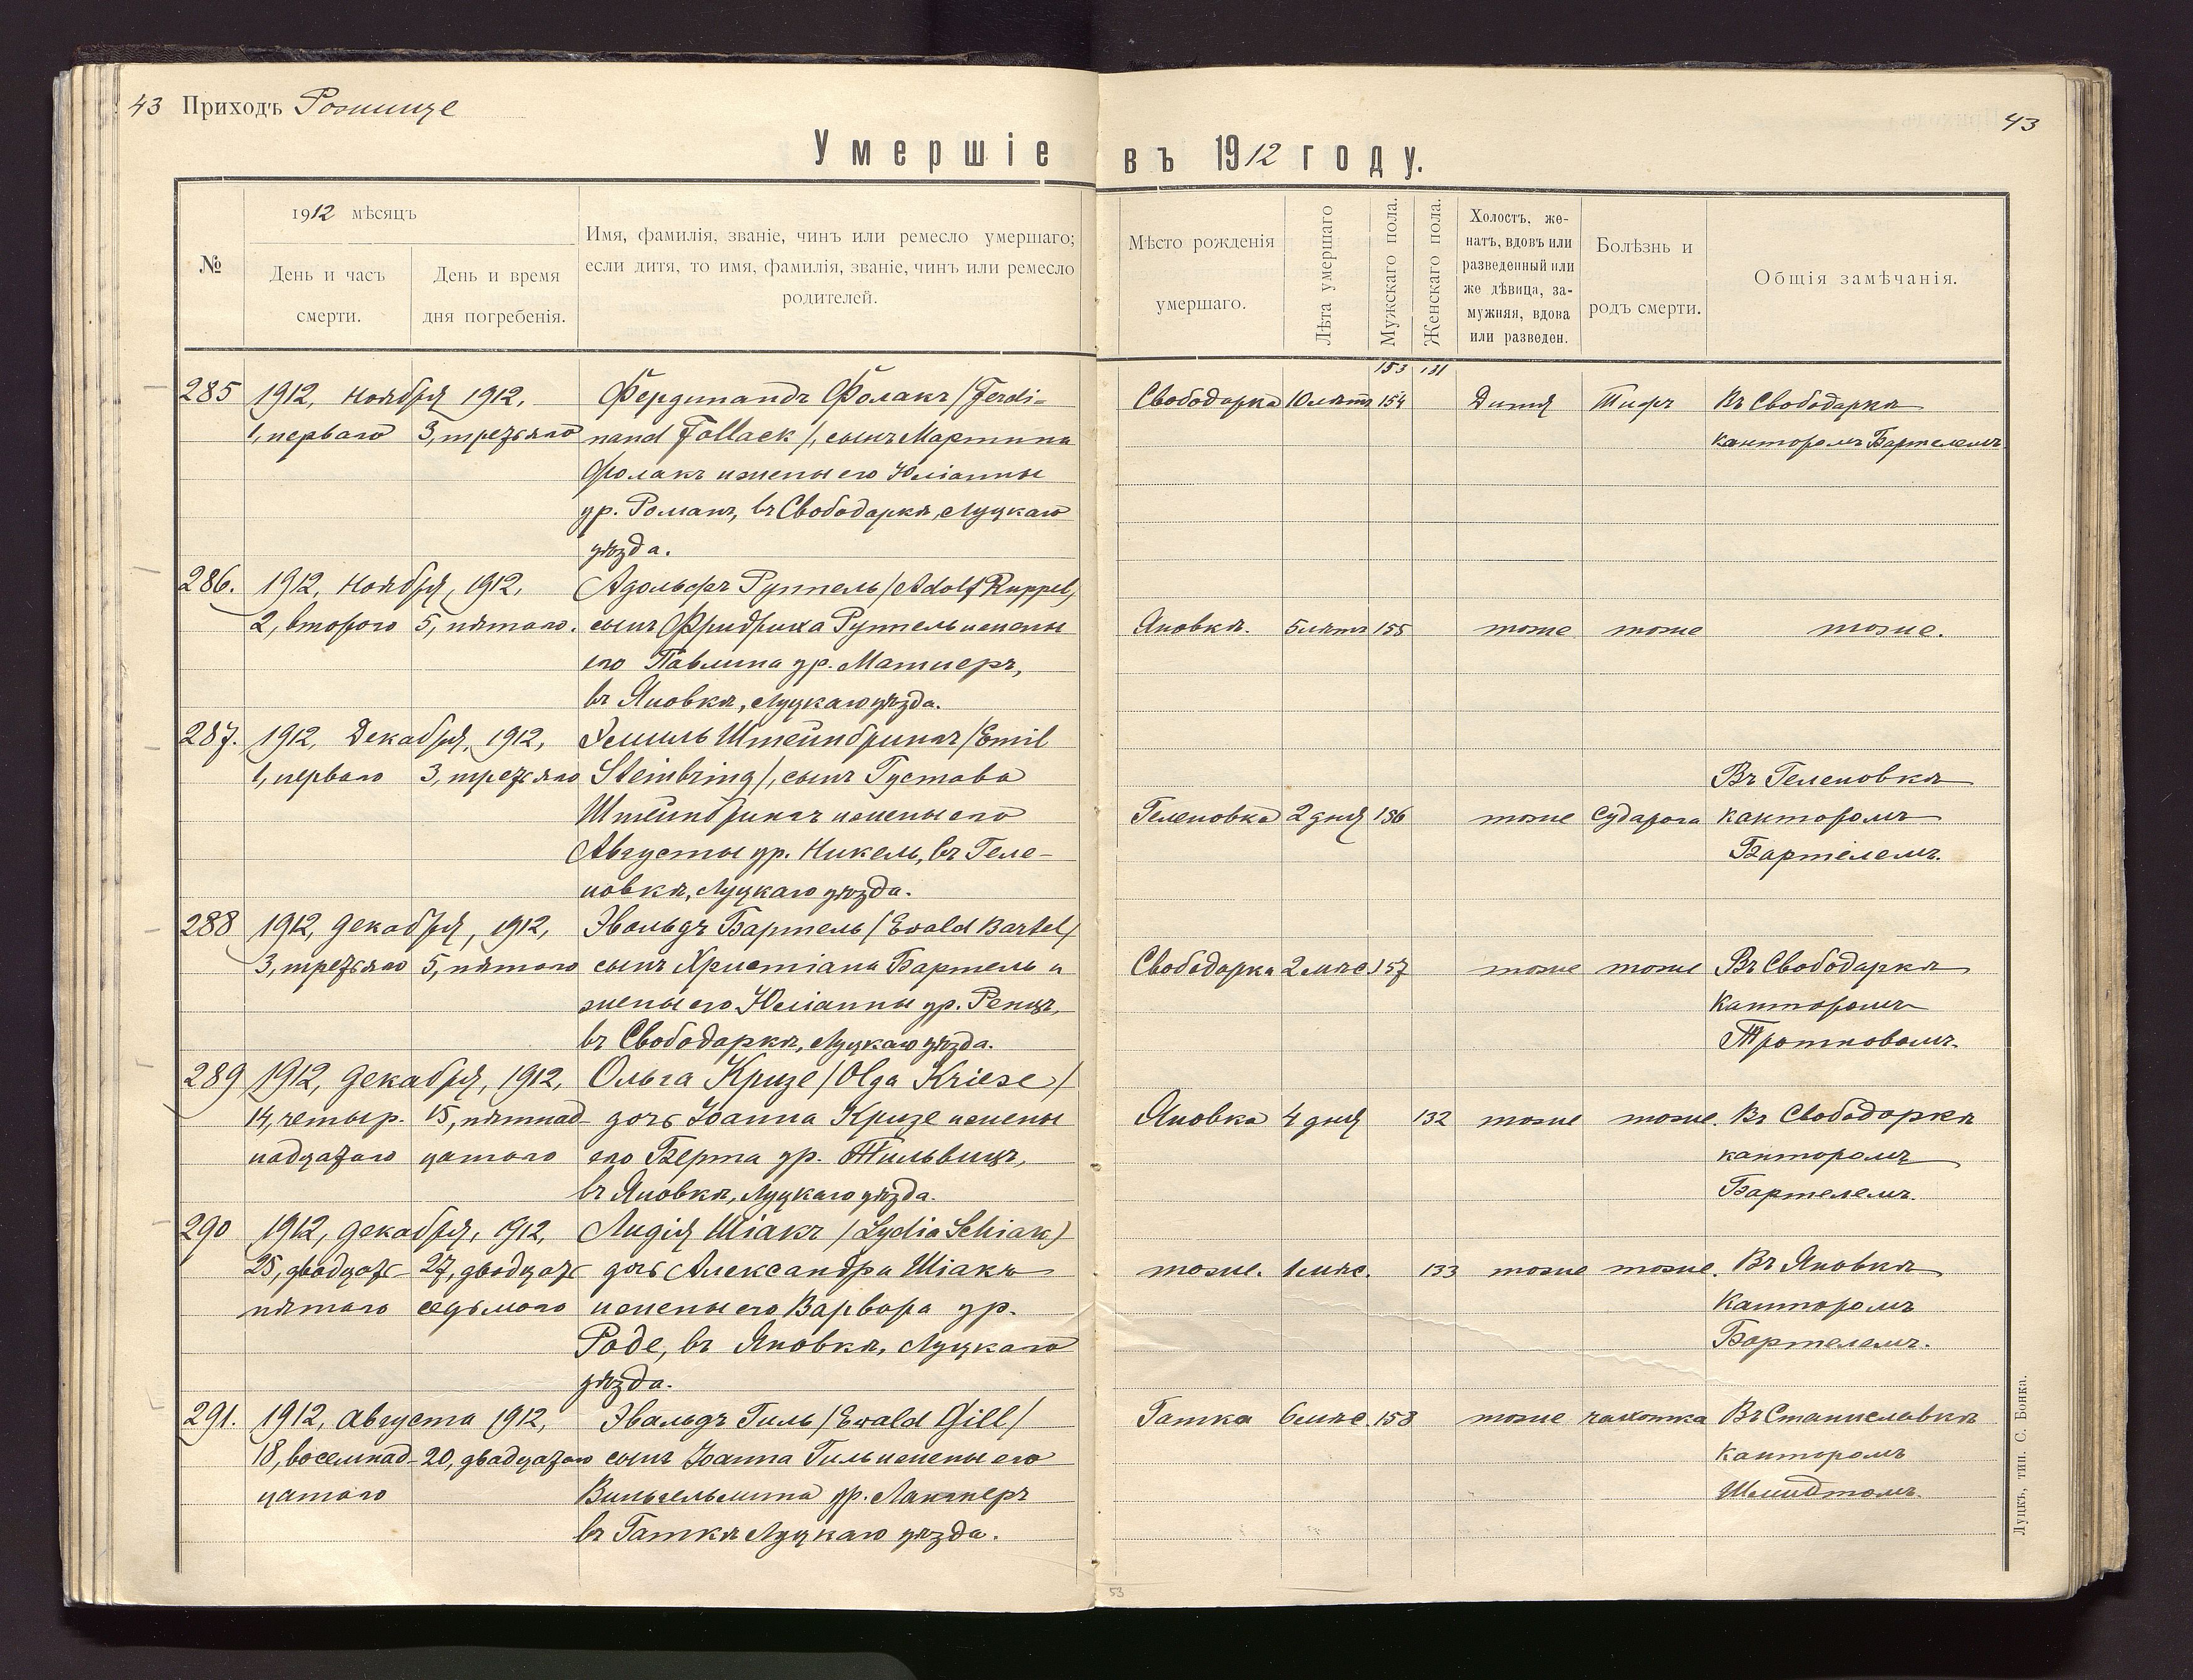 43 Приходъ Рожище
43
Умершіе въ 1912 году.
№
1912 мѣсяцъ
День и часъ смерти.
День и время дня погребенія.
Имя, фамилія, званіе, чинъ или ремесло умершаго;
если дитя, то имя, фамилія, званіе, чинъ или ремесло
родителей.
Мѣсто рожденія
умершаго.
Лѣта умершаго
Мужскаго пола.
Женскаго пола.
Холостъ, же-
натъ, вдовъ или
разведенный или
же дѣвица, за-
мужняя, вдова
или разведен.
Болѣзнь и
родъ смерти.
Общія замѣчанія.
153 131
285 1912, Ноября 1912, Фердинандъ Фолакъ /Ferdi- Свободарка 10 лѣтъ 154 Дитя Тифъ Въ Свободаркѣ
1, перваго 3, третьяго nand Follack/, сынъ Мартина канторомъ Бартелемъ
Фолакъ и жены его Юліанны
ур. Романъ, въ Свободаркѣ, Луцкаго
уѣзда.
286. 1912, Ноября, 1912, Адольфъ Руппель /Adolf Ruppel,
2, второго 5, пятаго. сынъ Фридриха Руппель и жены Яновкѣ. 5 лѣтъ 155 тоже тоже тоже.
его Павлина ур. Матнеръ,
въ Яновкѣ, Луцкаго уѣзда.
287. 1912, Декабря, 1912, Эмиль Штейнбрингъ /Emil
1, перваго 3, третьяго Steinbring/, сынъ Густава Въ Геленовкѣ
Штейнбрингъ и жены его Геленовка 2 дня 156 тоже судорога канторомъ
Августы ур. Никель, въ Геле- Бартелемъ.
новкѣ, Луцкаго уѣзда.
288 1912, декабря, 1912, Эвальдъ Бартель /Ewald Bartel/
3, третьяго 5, пятаго сынъ Христіана Бартель и Свободарка 2 мѣс. 157 тоже тоже Въ Свободаркѣ
жены его Юліанны ур. Ренцъ, канторомъ
въ Свободаркѣ, Луцкаго уѣзда.
289 1912, декабря, 1912, Ольга Кризе /Olga Kriese/
14, четыр- 15, пятнад- дочь Іоанна Кризе и жены Яновка 4 дня 132 тоже тоже. Въ Свободаркѣ
надцатаго цатаго его Берта ур. Тильвицъ, канторомъ
въ Яновкѣ, Луцкаго уѣзда. Бартелемъ.
290 1912, декабря, 1912, Лидія Шіакъ /Lydia Schiak)
25, двадцать 27, двадцать дочь Александра Шіакъ тоже. 1 мѣс. 133 тоже тоже. Въ Яновкѣ
пятаго седьмого и жены его Варвара ур. Канторомъ
Роде, въ Яновкѣ, Луцкаго Бартелемъ.
уѣзда.
291. 1912, Августа 1912, Эвальдъ Гиль /Ewald Gill/ Гатка 6 мѣс. 158 тоже чахотка Въ Станиславкѣ
18, восемнад- 20, двадцатаго сынъ Іоанна Гиль и жены его канторомъ
цатаго Вильгельмина ур. Лангнеръ Шмидтомъ.
въ Гаткѣ Луцкаго уѣзда.
Луцкъ, тип. С. Бонка.
53